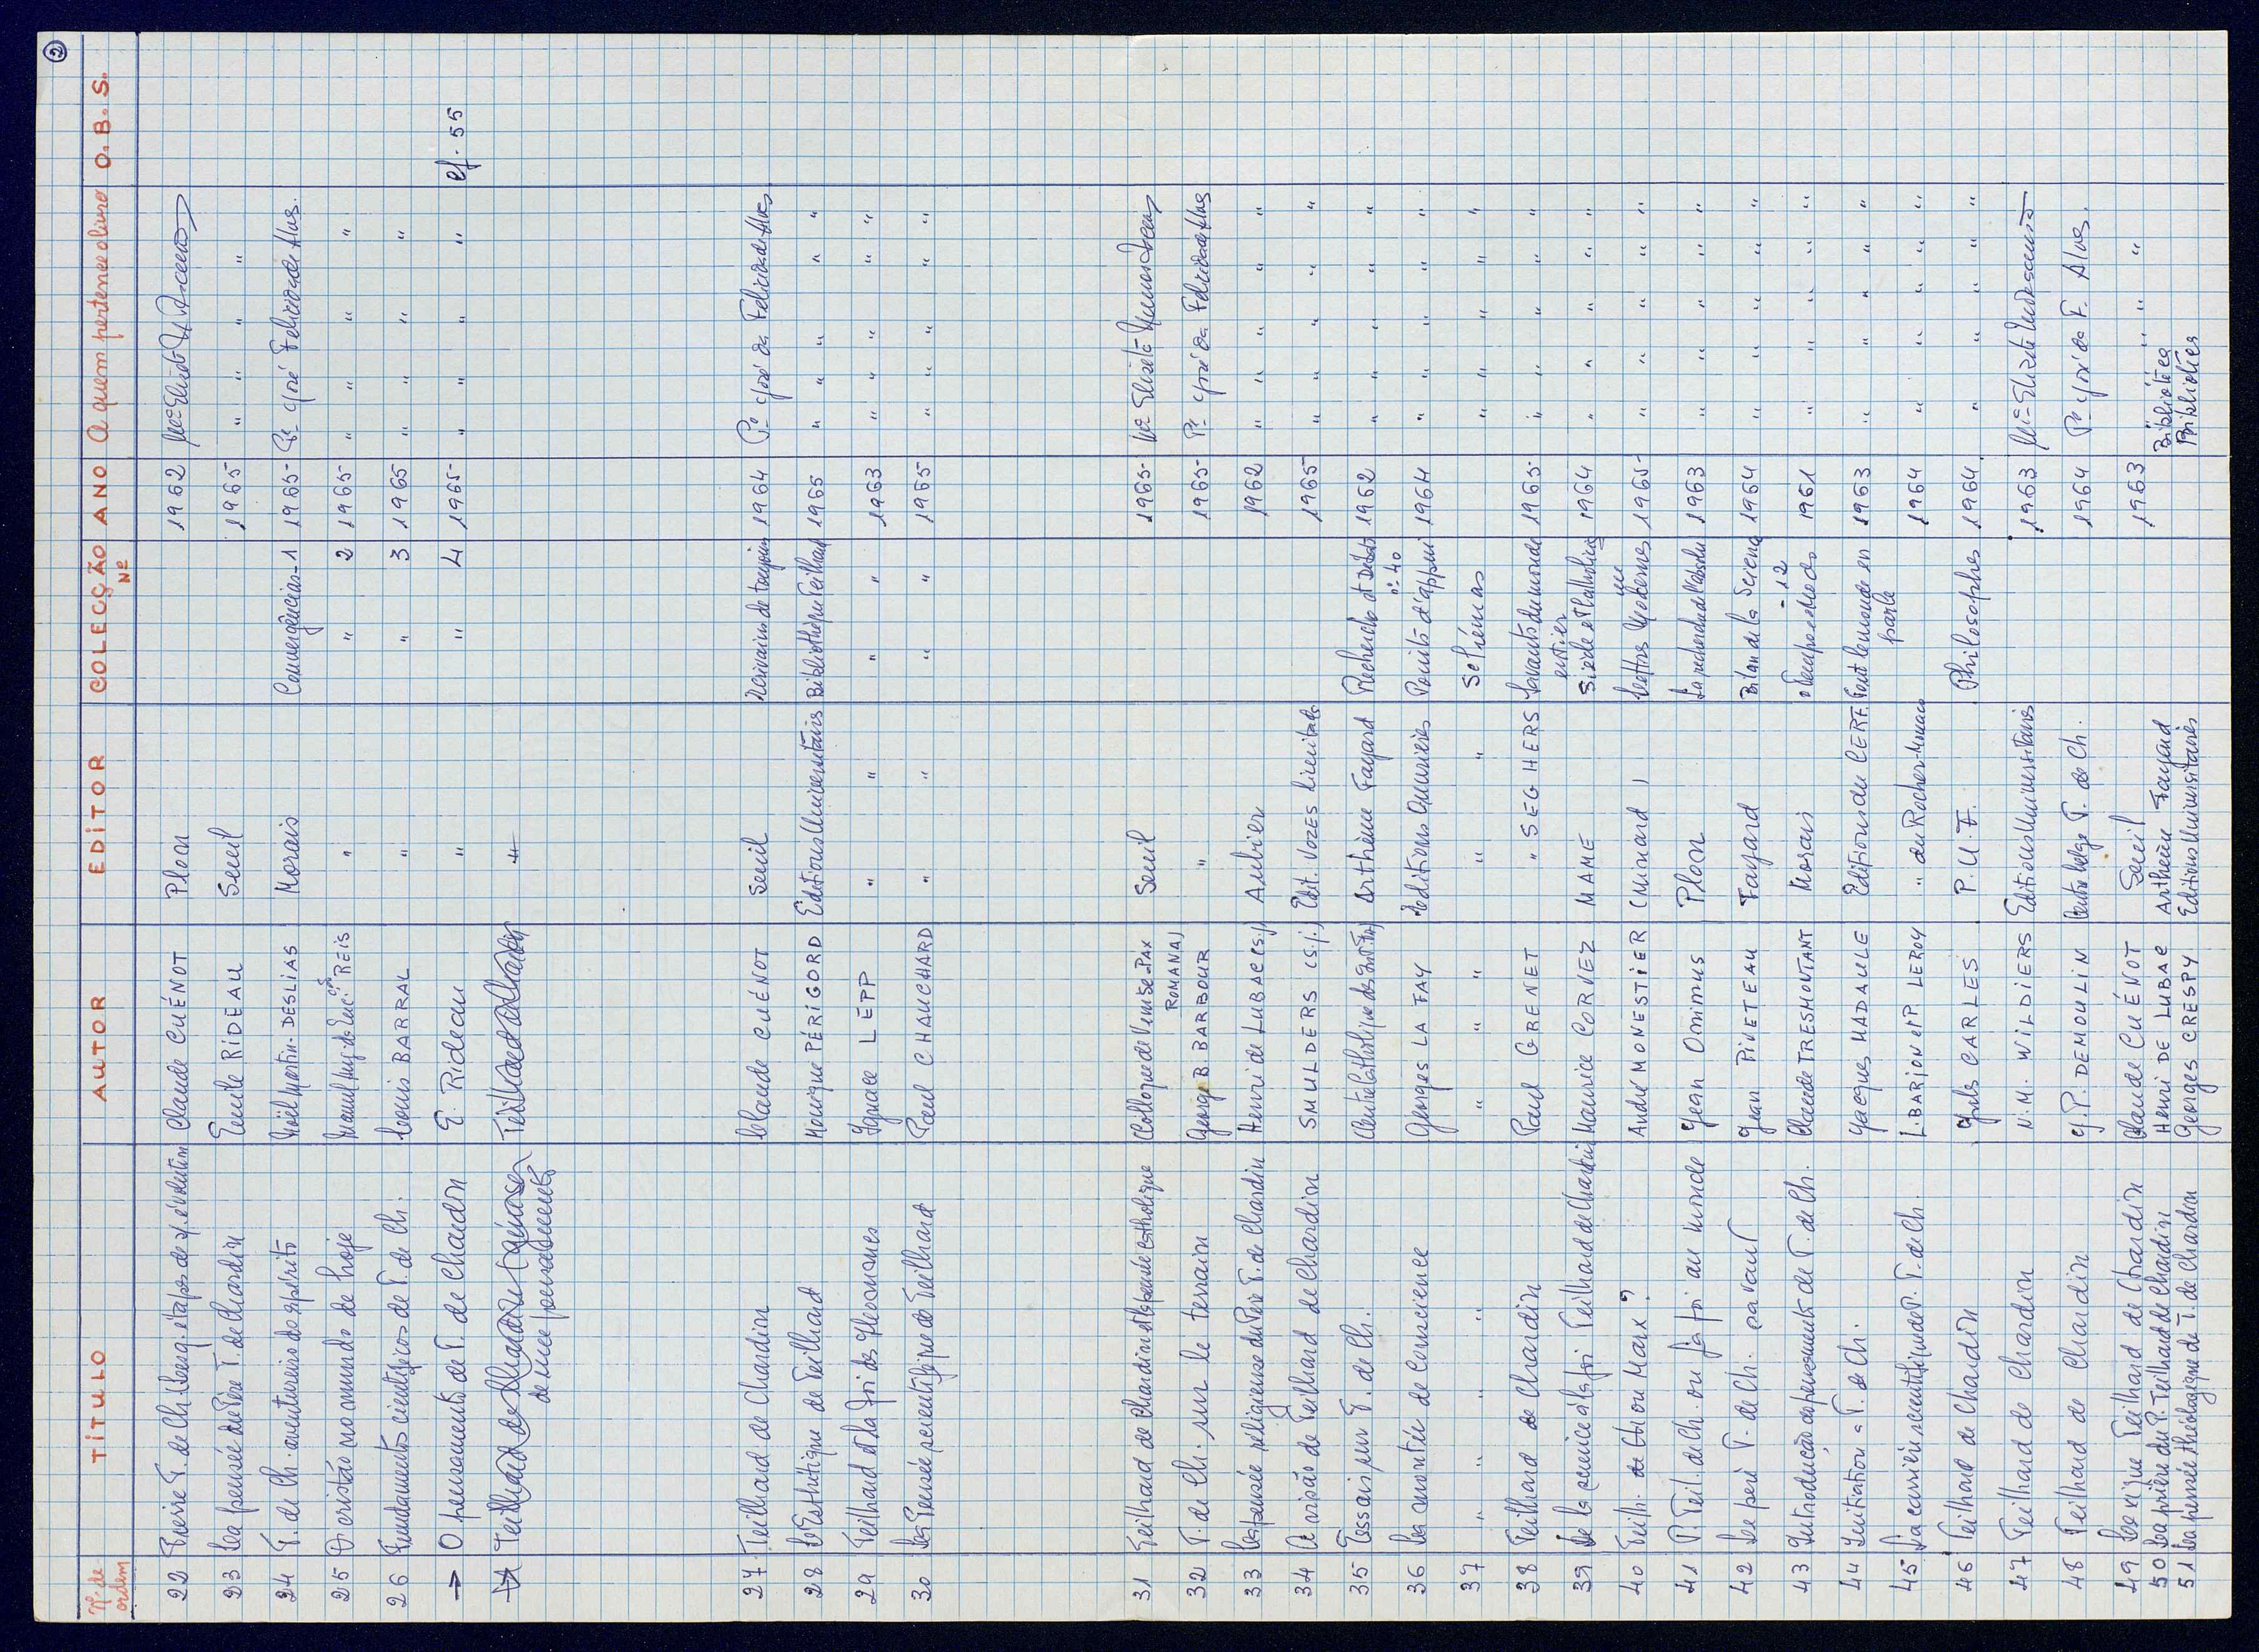 ②
Nº de ordem TITULO AUTOR EDITOR COLECÇÃO Nº ANO A quem pertence o livro O.B.S.
22 Pierre T. de Ch. étapes de s/. évolution Claude CUÉNOT Plon 1962
23 La pensée du Père T. de Chardin Emile RIDEAU Seuil 1965 " " " "
24 T. de Ch. aventureiro do espírito Noël Martin-DESLIAS Morais Convergências-1 1965 Pe José Felicidade Alves.
25 O cristão no mundo de hoje Manuel REIS " " 2 1965 " " " "
26 Fundamentos científicos de T. de Ch. Louis BARRAL " " 3 1965 " " " "
→ O pensamento de T. de Chardin E. Rideau " " 4 1965 " " " " cf. 55
"
27 Teilhard de Chardin Claude CUÉNOT Seuil Ecrivains de toujours 1964 Pe José da Felicidade Alves
28 L'Esthétique de Teilhard Monique PÉRIGORD Editions Universitaires Bibliothèque Teilhard 1965 " " " " "
29 Teilhard et la foi des hommes Ignace LEPP " " " " 1963 " " " " "
30 La Pensée scientifique de Teilhard Paul CHAUCHARD " " " " 1965 " " " " "
31 Teilhard de Chardin et la pensée catholique Colloque de Venise-PAX ROMANA Seuil 1965
32 T. de Ch. sur le terrain George B. BARBOUR " 1965 Pe José da Felicidade Alves
33 La pensée religieuse du Père T. de Chardin Henri de LUBAC (s.j.) Aubier 1962 " " " " "
34 A visão de Teilhard de Chardin SMULDERS (s.j.) Edit. VOZES limitada 1965 " " " " "
35 Essais sur T. de Ch. Centre Catholique des Arthème Fayard Recherches et Débats nº 40 1962 " " " " "
36 La montée de Conscience Georges LA FAY Editions Ouvrières Points d'appui 1964 " " " " "
37 " " " " " " " " " " " " " " "
38 Teilhard de Chardin Paul GRENET " SEGHERS Savants du monde entier 1965 " " " " "
39 De la science à la foi Teilhard de Chardin Maurice CORVEZ MAME Siècle et Catholicisme 1964 " " " " "
40 Teilh. de Ch. ou Marx? André MONESTIER (Minard) Lettres Modernes 1965 " " " " "
41 P. Teil. de Ch. ou la foi au monde Jean Onimus Plon La recherche de l'absolu 1963 " " " " "
42 Le père T. de Ch. savant Jean PIVETEAU Fayard Bilan de la Science 1964 " " " " "
43 Introdução ao pensamento de T. de Ch. Claude TRESMONTANT Morais O Tempo e o Modo - 12 1961 " " " " "
44 Initiation a T. de Ch. Jacques MADAULE Editions du CERF Tout le monde en parle 1963 " " " " "
45 La carrière scientifique de T. de Ch. L. BARJON et P. LEROY " du Rocher-Monaco 1964 " " " " "
46 Teilhard de Chardin Jules CARLES P.U.F. Philosophes 1964. " " " " "
47 Teilhard de Chardin N.M. WILDIERS Editions Universitaires 1963
48 Teilhard de Chardin J.P. DEMOULIN Centre belge T. de Ch. 1964 Pe José da F. Alves.
49 Lexique Teilhard de Chardin Claude CUÉNOT Seuil 1963 " " " "
50 La prière du P. Teilhard de Chardin Henri DE LUBAC Arthème Fayard Biblioteca
51 La pensée théologique de T. de Chardin Georges CRESPY Editions Universitaires